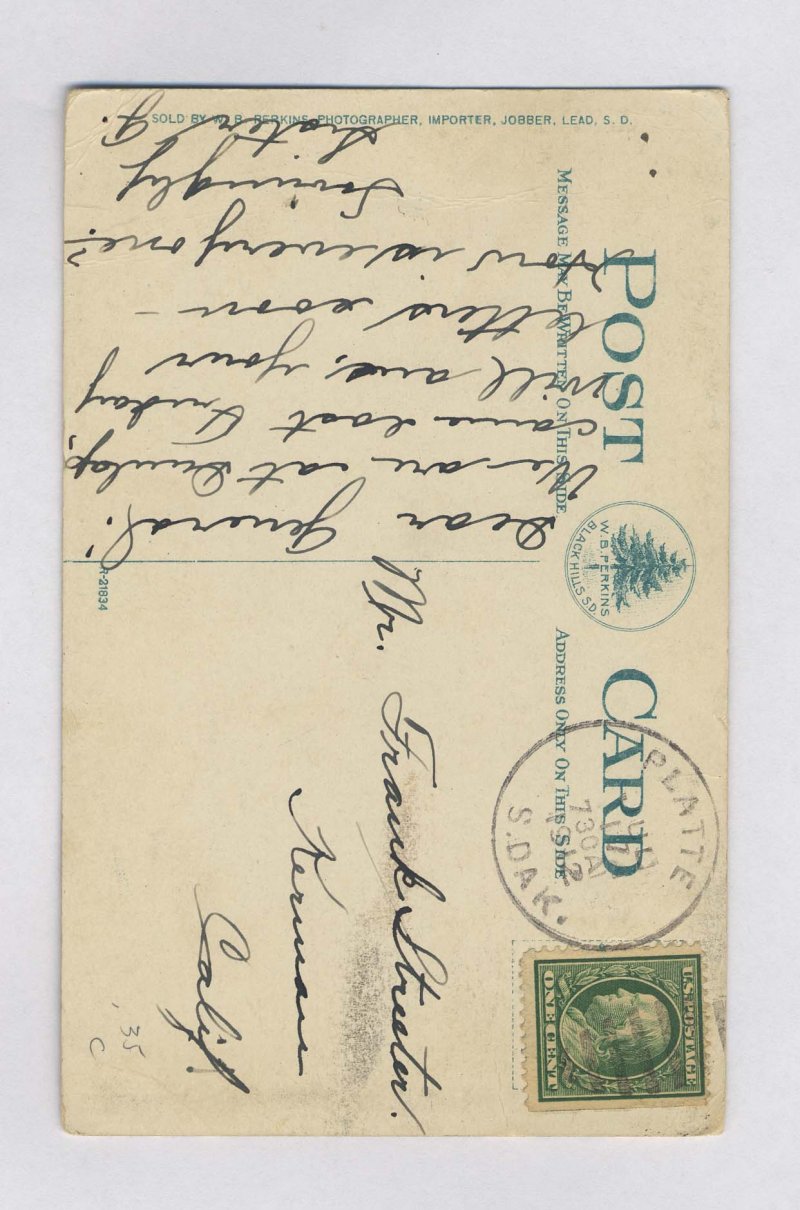 SOLD BY W. B. PERKINS, PHOTOGRAPHER, IMPORTER, JOBBER, LEAD, S. D.
POST CARD
W. B. PERKINS
BLACK HILLS S.D.
MESSAGE MAY BE WRITTEN ON THIS SIDE
ADDRESS ONLY ON THIS SIDE
Dear General:
We are at Dunlap,
came last Friday
Will ans. your
letters soon -
How is everyone?
Lovingly
Sister G.
R-21834
PLATTE
17
730A
1912
S. DAK.
U.S. POSTAGE
ONE CENT
Mr. Frank Streeter.
Kerman
Calif.
.35
C